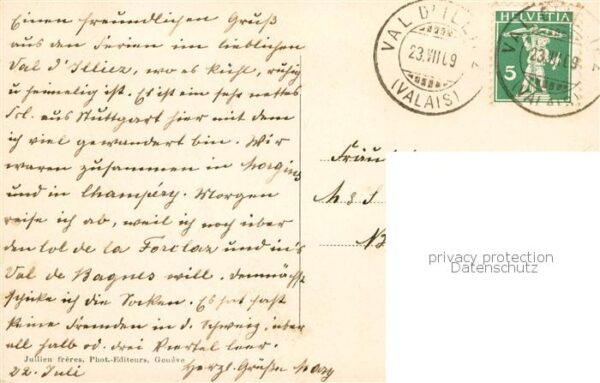 Einen freundlichen Gruß
aus den Ferien im lieblichen
Val d'Illiez, wo es kühl, ruhig
u heimelig ist. Es ist ein sehr nettes
Frl. aus Stuttgart hier mit dem
ich viel gewandert bin. Wir
waren zusammen in Morgins
und in Champéry. Morgen
reise ich ab, weil ich noch über
den Col de la Forclaz und ins
Val de Bagnes will. Demnächst
schicke ich die Socken. Es hat fast
keine Fremden in d. Schweiz, über
all halb od. drei Viertel leer.
Jullien frères, Phot.-Editeurs, Genève
22. Juli Herzl. Grüße Mary
VAL D'ILLIEZ
23.VII 09
(VALAIS)
HELVETIA
5
VAL D'ILLIEZ
23.VII 09
(VALAIS)
Fräul
privacy protection
Datenschutz